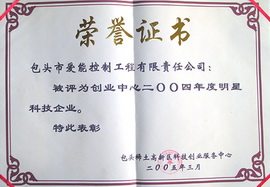 荣誉证书
包头市爱能控制工程有限责任公司：
被评为创业中心二〇〇四年度明星
科技企业。
特此表彰
包头稀土高新区科技创业服务中心
二〇〇五年三月